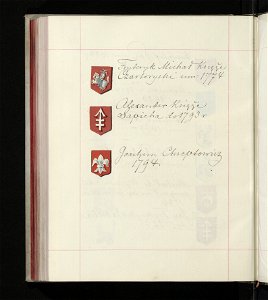 Fryderyk Michał Książe
Czartoryski um 1774
Alexander Książe
Sapieha do 1793 r
Joachim Chreptowicz
1794.